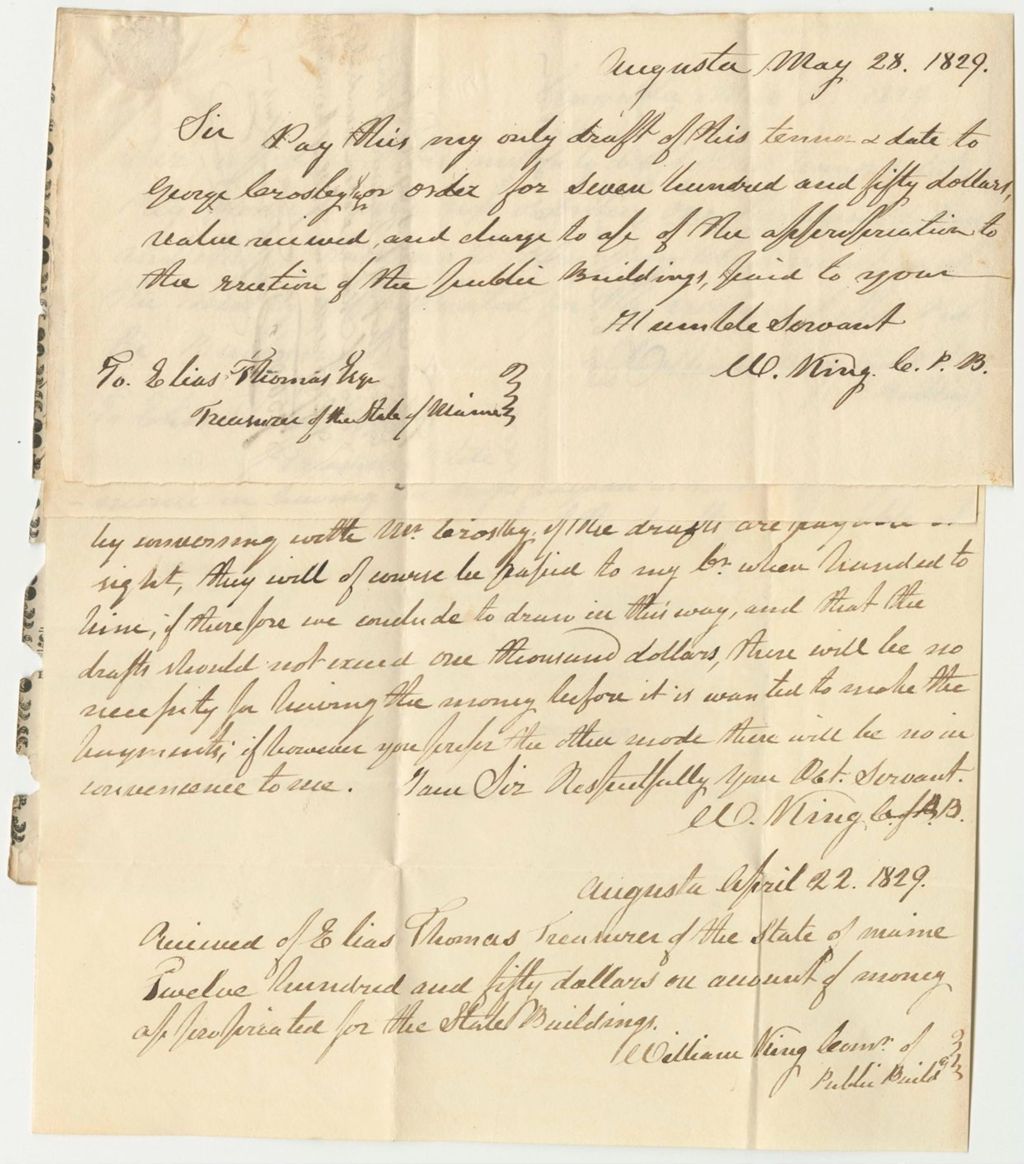 Augusta May 28. 1829.
Sir Pay this my only draft of this tennor & date to
George Crosley or order for seven hundred and fifty dollars,
value reciened, and charge to a/c of the appropriation to
the erection of the public Buildings, paid to your
Humble Servant
W. King. C. P. B.
To. Elias Thomas Esqr
Treasurer of the State of Maine
by conversing with Mr. Crosby, if the drafts are payable
sight, they will of course be passed to my Cr. when handed to
him, if therefore we conclude to draw in this way, and that the
drafts should not exceed one thousand dollars, there will be no
necessity for having the money before it is wanted to make the
payments; if however you prefer the other mode there will be no in
convenience to me. I am Sir Respectfully your Obt. Servant.
W. King C. of P. B.
Augusta April 22. 1829.
Recieved of Elias Thomas Treasurer of the State of maine
Twelve hundred and fifty dollars on account of money
appropriated for the State Buildings.
William King Comr. of
Public Builds